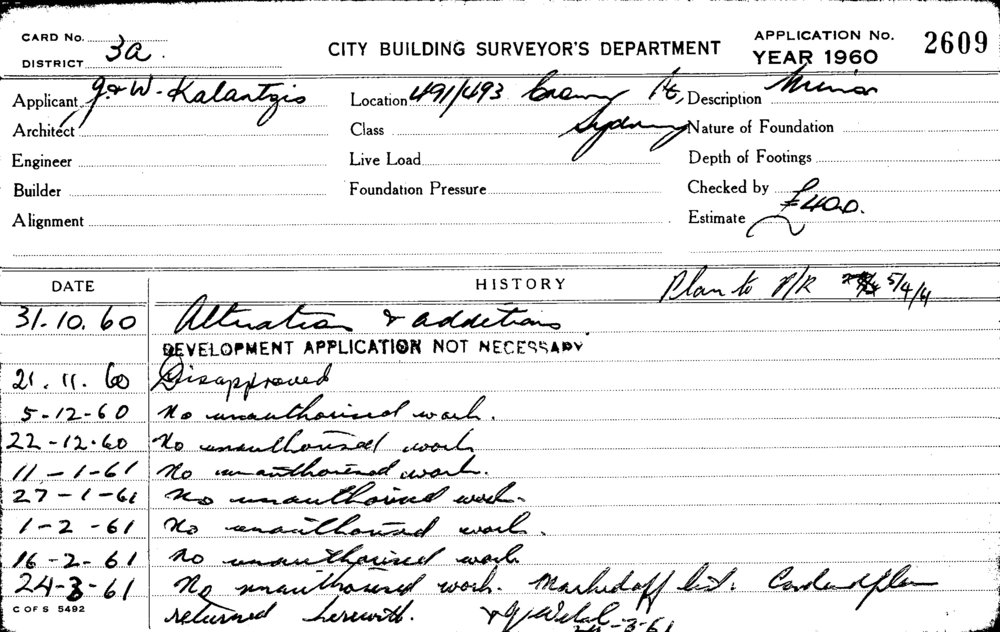 CARD No.
DISTRICT 3a.
CITY BUILDING SURVEYOR'S DEPARTMENT
APPLICATION No. 2609
YEAR 1960
Applicant J. & W. Kalantzis
Location 491/493 Crown St, Sydney
Description Minor
Architect
Class
Nature of Foundation
Engineer
Live Load
Depth of Footings
Builder
Foundation Pressure
Checked by
Alignment
Estimate £400.
DATE
HISTORY
Plan to P/R 5/4/61
31.10.60 Alteration & additions
DEVELOPMENT APPLICATION NOT NECESSARY
21.11.60 Disapproved
5-12-60 No unauthorised work.
22-12-60 No unauthorised work
11-1-61 No unauthorised work.
27-1-61 No unauthorised work.
1-2-61 No unauthorised work.
16-2-61 No unauthorised work
24-3-61 No unauthorised work. Marked off list. Card and plan
returned herewith. 24-3-61
C OF S 5492